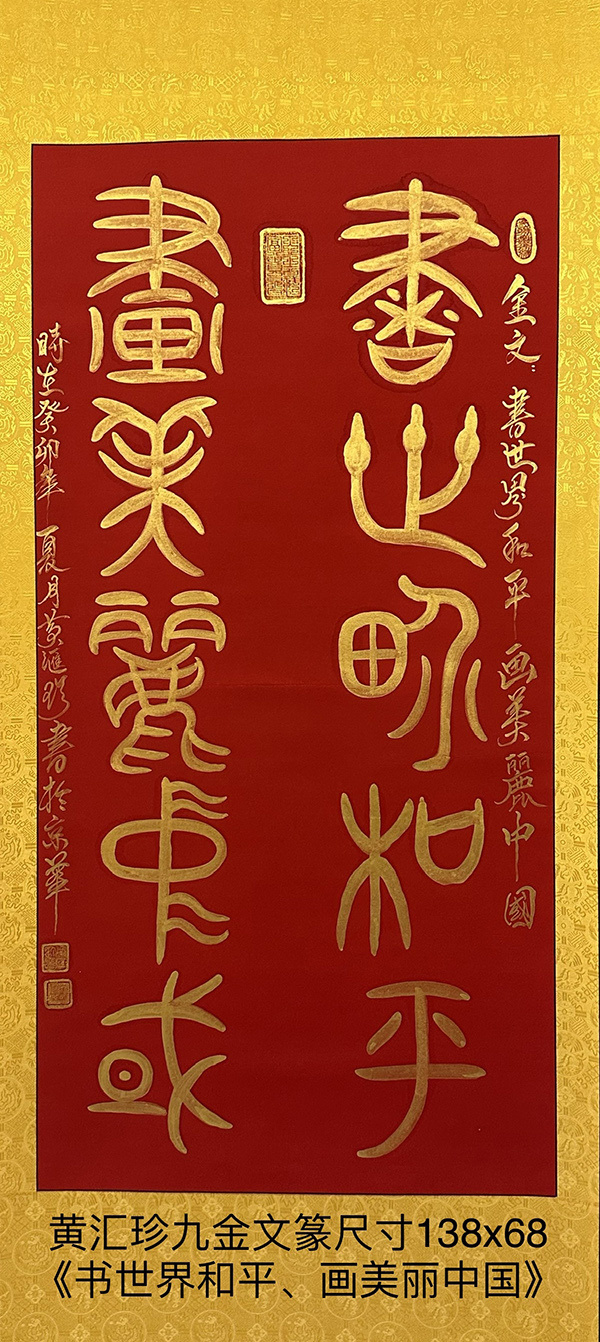 金文：書世界和平画美麗中國
書世界和平
畫美麗中或
時在癸卯年夏月黄滙珍書於京華
黄汇珍九金文篆尺寸138x68
《书世界和平、画美丽中国》